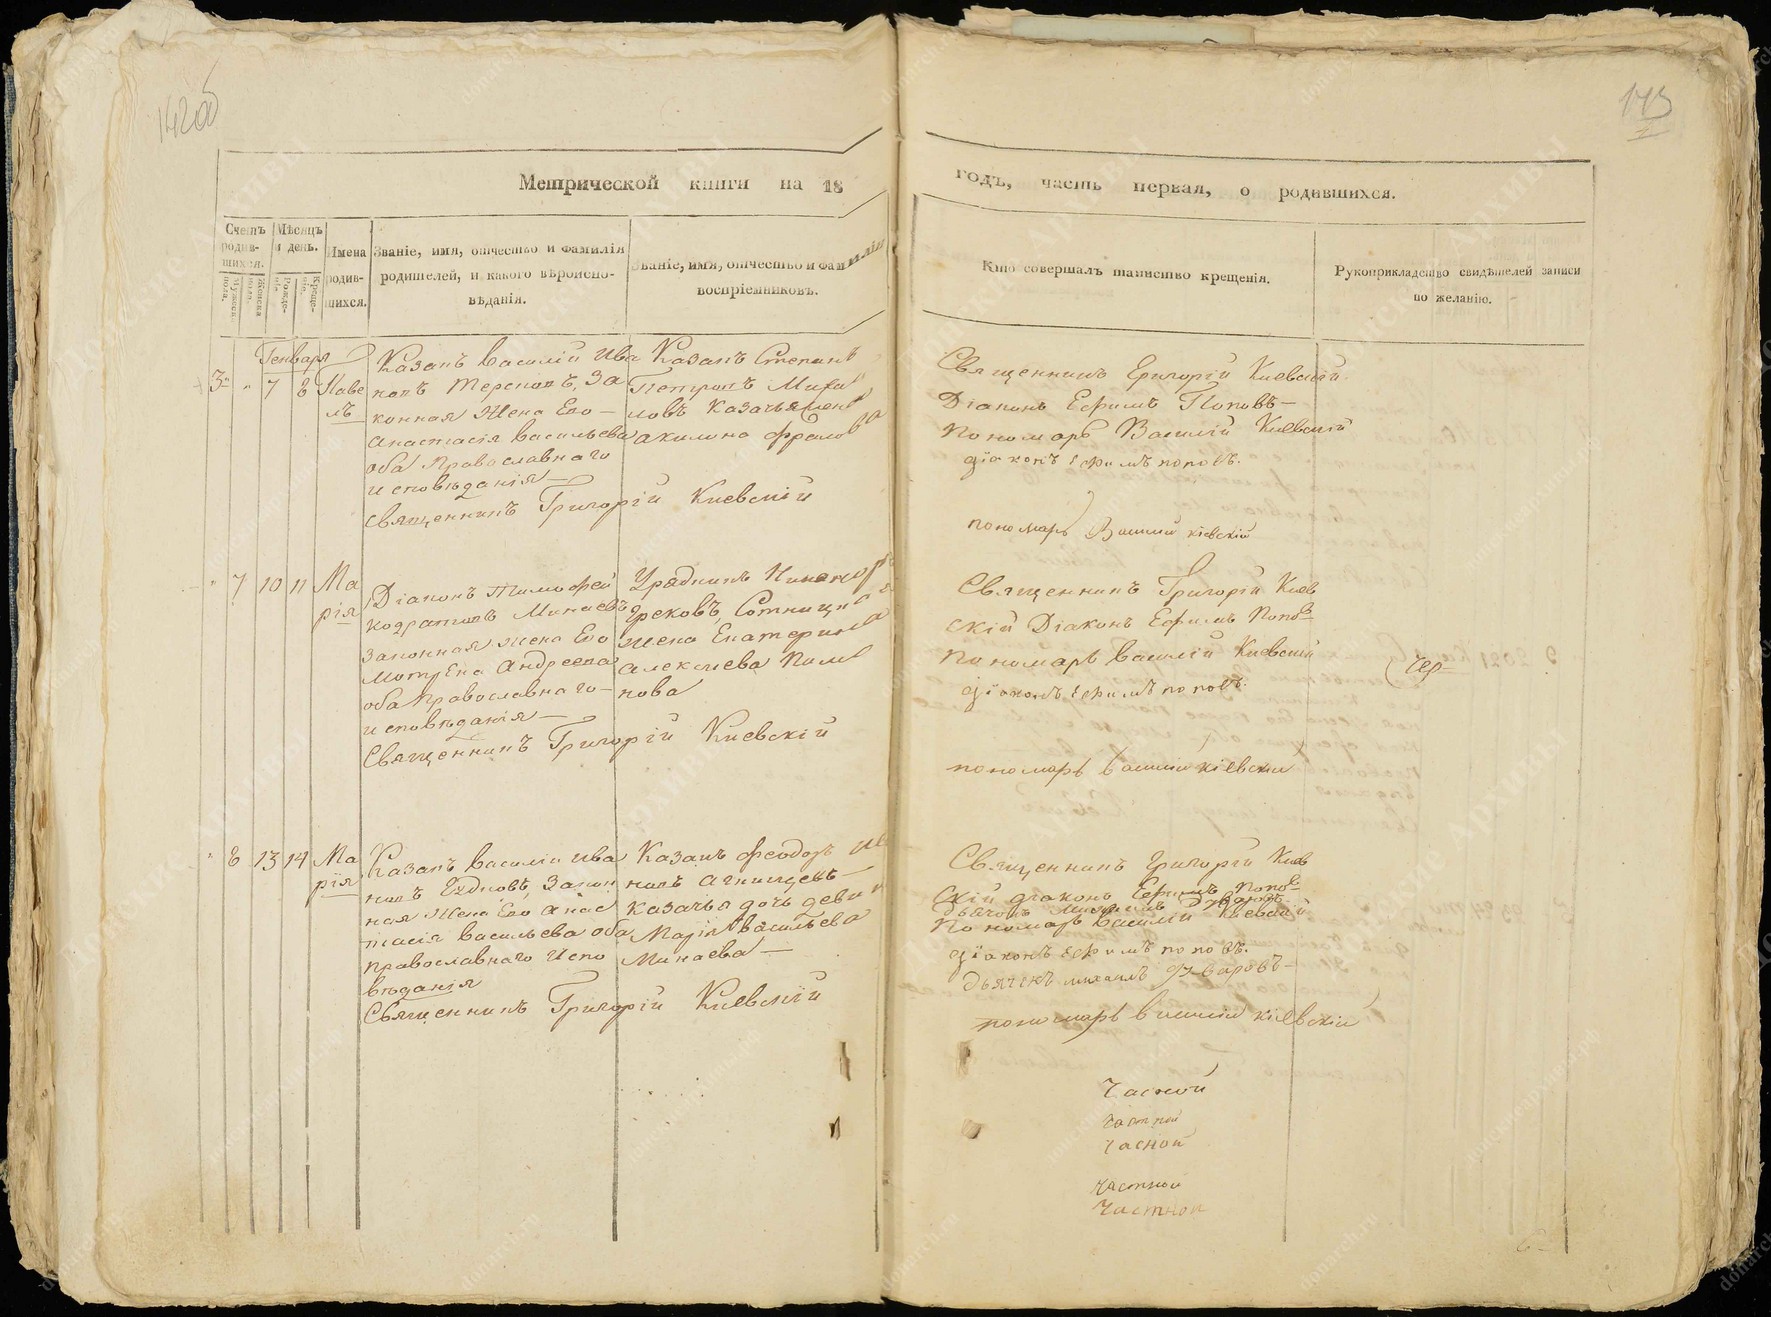 142 об
143
Метрической книги на 18
годъ, часть первая, о родившихся.
Счетъ родив-шихся.
Мужеска пола.
Женска пола.
Мѣсяцъ и день.
Рожде-нія.
Креще-нія.
Имена родив-шихся.
Званіе, имя, отчество и фамилія
родителей, и какого вѣроиспо-
вѣданія.
Званіе, имя, отчество и фамилія
воспріемниковъ.
Кто совершалъ таинство крещенія.
Рукоприкладство свидѣтелей записи
по желанію.
Генваря
3 " 7 8 Паве
лъ
Казакъ Василій Ива
новъ Терсковъ, За
конная Жена Его
Анастасія Васильева
оба Православнаго
исповѣданія
Священникъ Григорій Киевскій
Казакъ Степанъ
Петровъ Михаи
ловъ Казачья жена
Акилина Фролова
Священникъ Григорій Киевскій
Діаконъ Ефимъ Поповъ
Пономарь Василій Киевскій
діаконъ Ефимъ поповъ.
пономарь Василій кіевскій
" 7 10 11 Ма
рія
Діаконъ Тимофей
Кодратовъ Минаевъ
законная жена Его
Матрена Андреева
оба Православнаго
исповѣданія
Священникъ Григорій Киевскій
Урядникъ Никаноръ
Грековъ, Сотника
жена Екатерина
Алексеева Попо
нова
Священникъ Григорій Киев
скій Діаконъ Ефимъ Попов
Пономарь Василій Киевскій
діаконъ Ефимъ поповъ.
пономарь Василій кіевскій
" 8 13 14 Ма
рія
Казакъ Василій Ива
новъ Ездковъ, Закон
ная Жена Его Анас
тасія Васильева оба
православнаго Испо
вѣданія
Священникъ Григорій Киевскій
Казакъ Феодоръ Ива
новъ
казачья дочь девка
Марія Васильева
Минаева
Священникъ Григорій Киев
скій діаконъ Ефимъ Попов
Дьячокъ Михаилъ
Пономарь Василій Киевскій
діаконъ Ефимъ поповъ.
дьячекъ михаилъ
пономарь Василій кіевскій
Часной
Частной
Часной
Частной
Частной